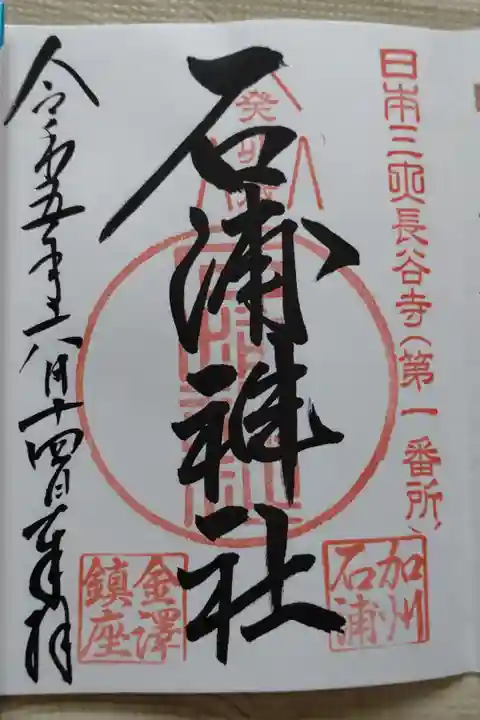 日本三
長谷寺(第一番所)
石浦神社
加州
石浦
金澤
鎮座
令和五年
八月十四日奉拝